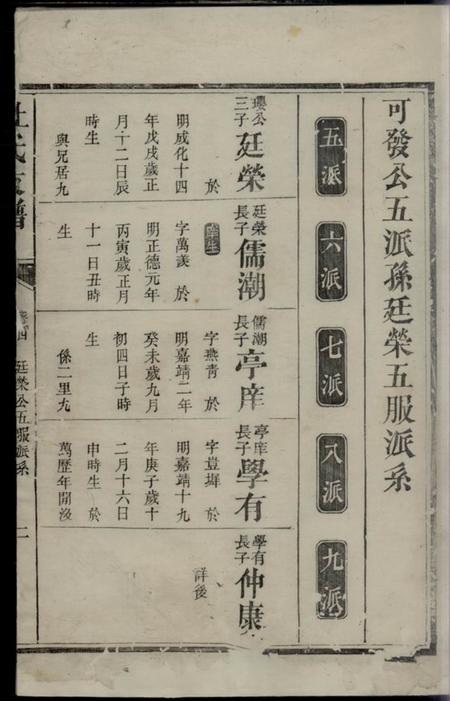 可發公五派孫廷榮五服派系
五派
六派
七派
八派
九派
瓊公三子廷榮
於
明成化十四
年戊戌歲正
月十二日辰
時生
與兄居九
廷榮長子儒潮
庠生
字萬羨 於
明正德元年
丙寅歲正月
十一日丑時
生
儒潮長子亭庠
字燕靑 於
明嘉靖二年
癸未歲九月
初四日子時
生
係二里九
亭庠長子學有
字豈墀 於
明嘉靖十九
年庚子歲十
二月十六日
申時生 於
萬歷年間歿
學有長子仲康
詳後
杜氏支譜
卷四 廷榮公五服派系 二